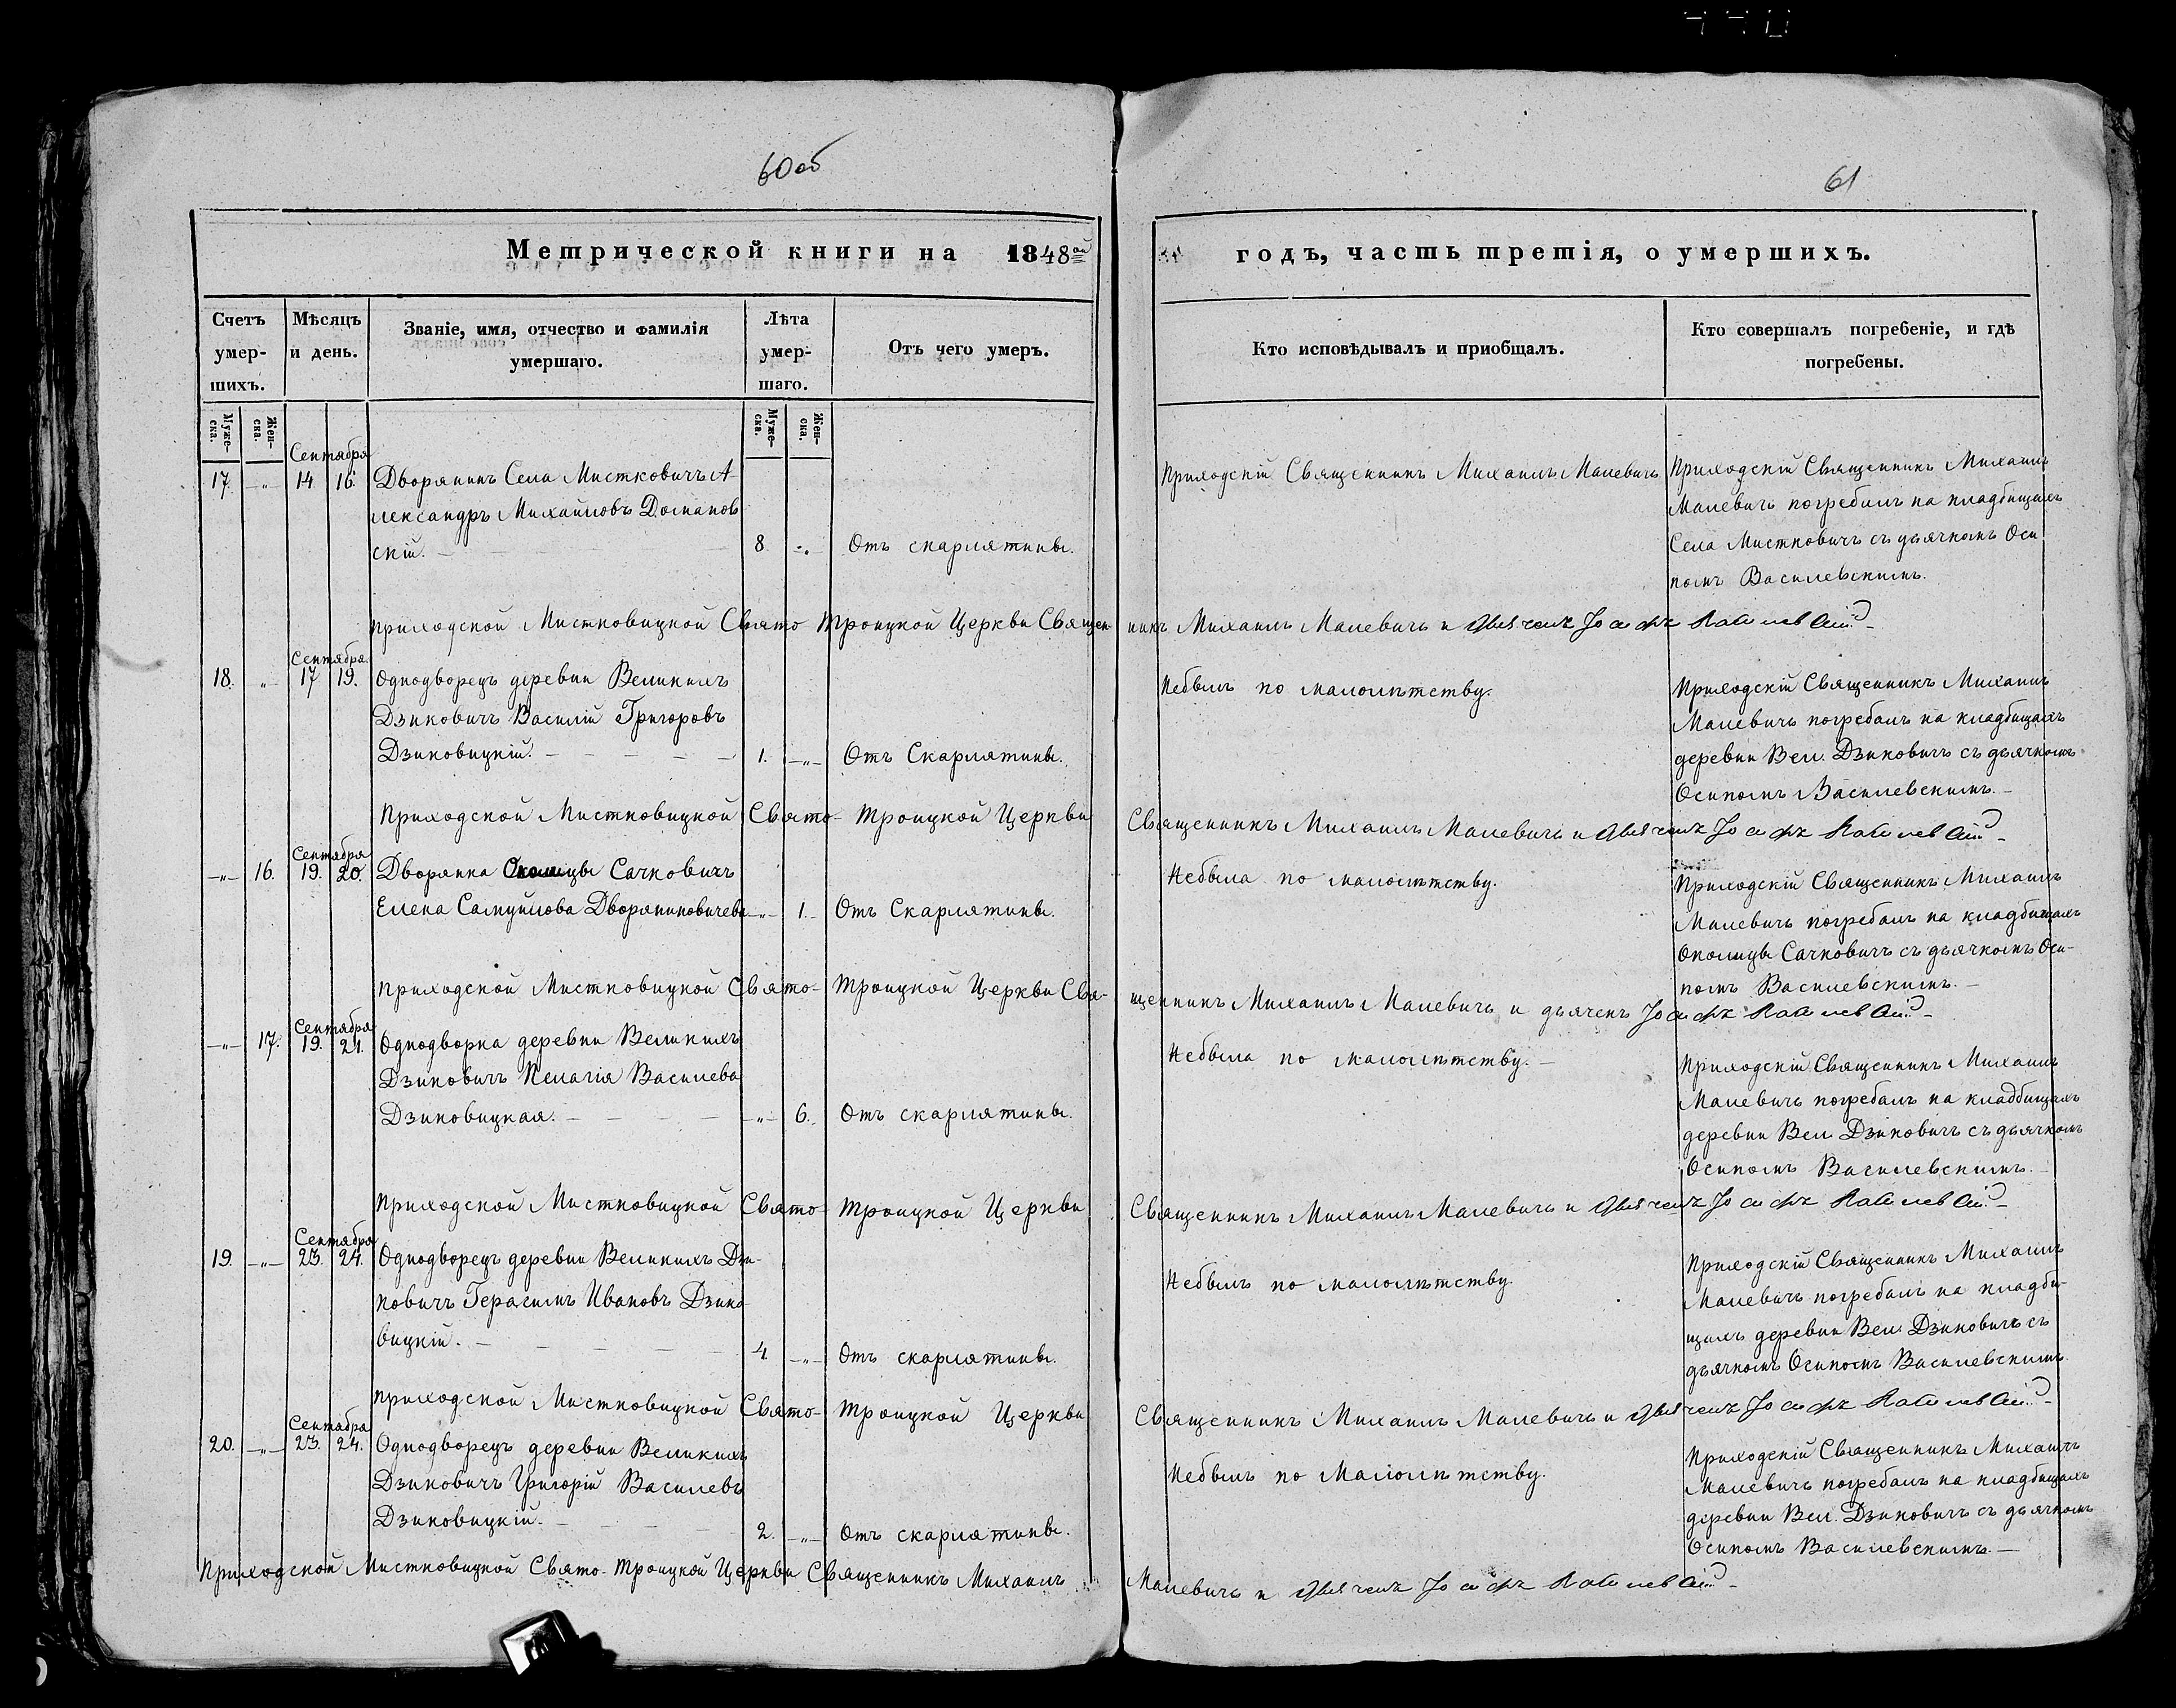 60 об
Метрической книги на 1848ой
Счетъ умер-шихъ.
Мѣсяцъ и день.
Званіе, имя, отчество и фамилія умершаго.
Лѣта умер-шаго.
Отъ чего умеръ.
Муже-ска.
Жен-ска.
Муже-ска.
Жен-ска.
61
годъ, часть третія, о умершихъ.
Кто исповѣдывалъ и приобщалъ.
Кто совершалъ погребеніе, и гдѣ погребены.
Сентября
17. -„- 14 16. Дворянинъ Села Мистковичъ А-
лександръ Михайловъ Доманов
скій. 8. -„- Отъ скарлятины.
Приходскій Священникъ Михаилъ Малевичъ
Приходскій Священникъ Михаилъ
Малевичъ погребалъ на кладбищахъ
Села Мистковичъ съ дьячкомъ Оси
помъ Василевскимъ.
Приходской Мистковицкой Свято Троицкой Церкви Священ никъ Михаилъ Малевичъ и Дьячекъ Іосифъ Василевскій
Сентября
18. „ 17 19. Однодворецъ деревни Великихъ
Дзиковичъ Василій Григоровъ
Дзиковицкій. 1. -„- Отъ Скарлятины.
Небылъ по малолѣтству.
Приходскій Священникъ Михаилъ
Малевичъ погребалъ на кладбищахъ
деревни Вел. Дзиковичъ съ дьячкомъ
Осипомъ Василевскимъ.
Приходской Мистковицкой Свято-Троицкой Церкви Священникъ Михаилъ Малевичъ и Дьячекъ Іосифъ Василевскій
Сентября
-„- 16. 19. 20. Дворянка Околицы Сачковичъ
Елена Самуйлова Дворяниновичева -„- 1. Отъ Скарлятины.
Небыла по малолѣтству.
Приходскій Священникъ Михаилъ
Малевичъ погребалъ на кладбищахъ
Околицы Сачковичъ съ дьячкомъ Оси-
помъ Василевскимъ.
Приходской Мистковицкой Свято-Троицкой Церкви Свя- щенникъ Михаилъ Малевичъ и дьячекъ Іосифъ Василевскій
Сентября
-„- 17. 19. 21. Однодворка деревни Великихъ
Дзиковичъ Пелагія Василева
Дзиковицкая. -„- 6. Отъ скарлятины.
Небыла по малолѣтству.
Приходскій Священникъ Михаилъ
Малевичъ погребалъ на кладбищахъ
деревни Вел. Дзиковичъ съ дьячкомъ
Осипомъ Василевскимъ.
Приходской Мистковицкой Свято-Троицкой Церкви Священникъ Михаилъ Малевичъ и Дьячекъ Іосифъ Василевскій
Сентября
19. -„- 23. 24. Однодворецъ деревни Великихъ Дзи-
ковичъ Герасимъ Ивановъ Дзико-
вицкій. 4. -„- Отъ скарлятины.
Небылъ по малолѣтству.
Приходскій Священникъ Михаилъ
Малевичъ погребалъ на кладби-
щахъ деревни Вел. Дзиковичъ съ
дьячкомъ Осипомъ Василевскимъ.
Приходской Мистковицкой Свято-Троицкой Церкви Священникъ Михаилъ Малевичъ и Дьячекъ Іосифъ Василевскій
Сентабря
20. -„- 23. 24. Однодворецъ деревни Великихъ
Дзиковичъ Григорій Василевъ
Дзиковицкій. 2. -„- Отъ скарлятины.
Небылъ по Малолѣтству.
Приходскій Священникъ Михаилъ
Малевичъ погребалъ на кладбищахъ
деревни Вел. Дзиковичъ съ дьячкомъ
Осипомъ Василевскимъ.
Приходской Мистковицкой Свято-Троицкой Церкви Священникъ Михаилъ Малевичъ и Дьячекъ Іосифъ Василевскій